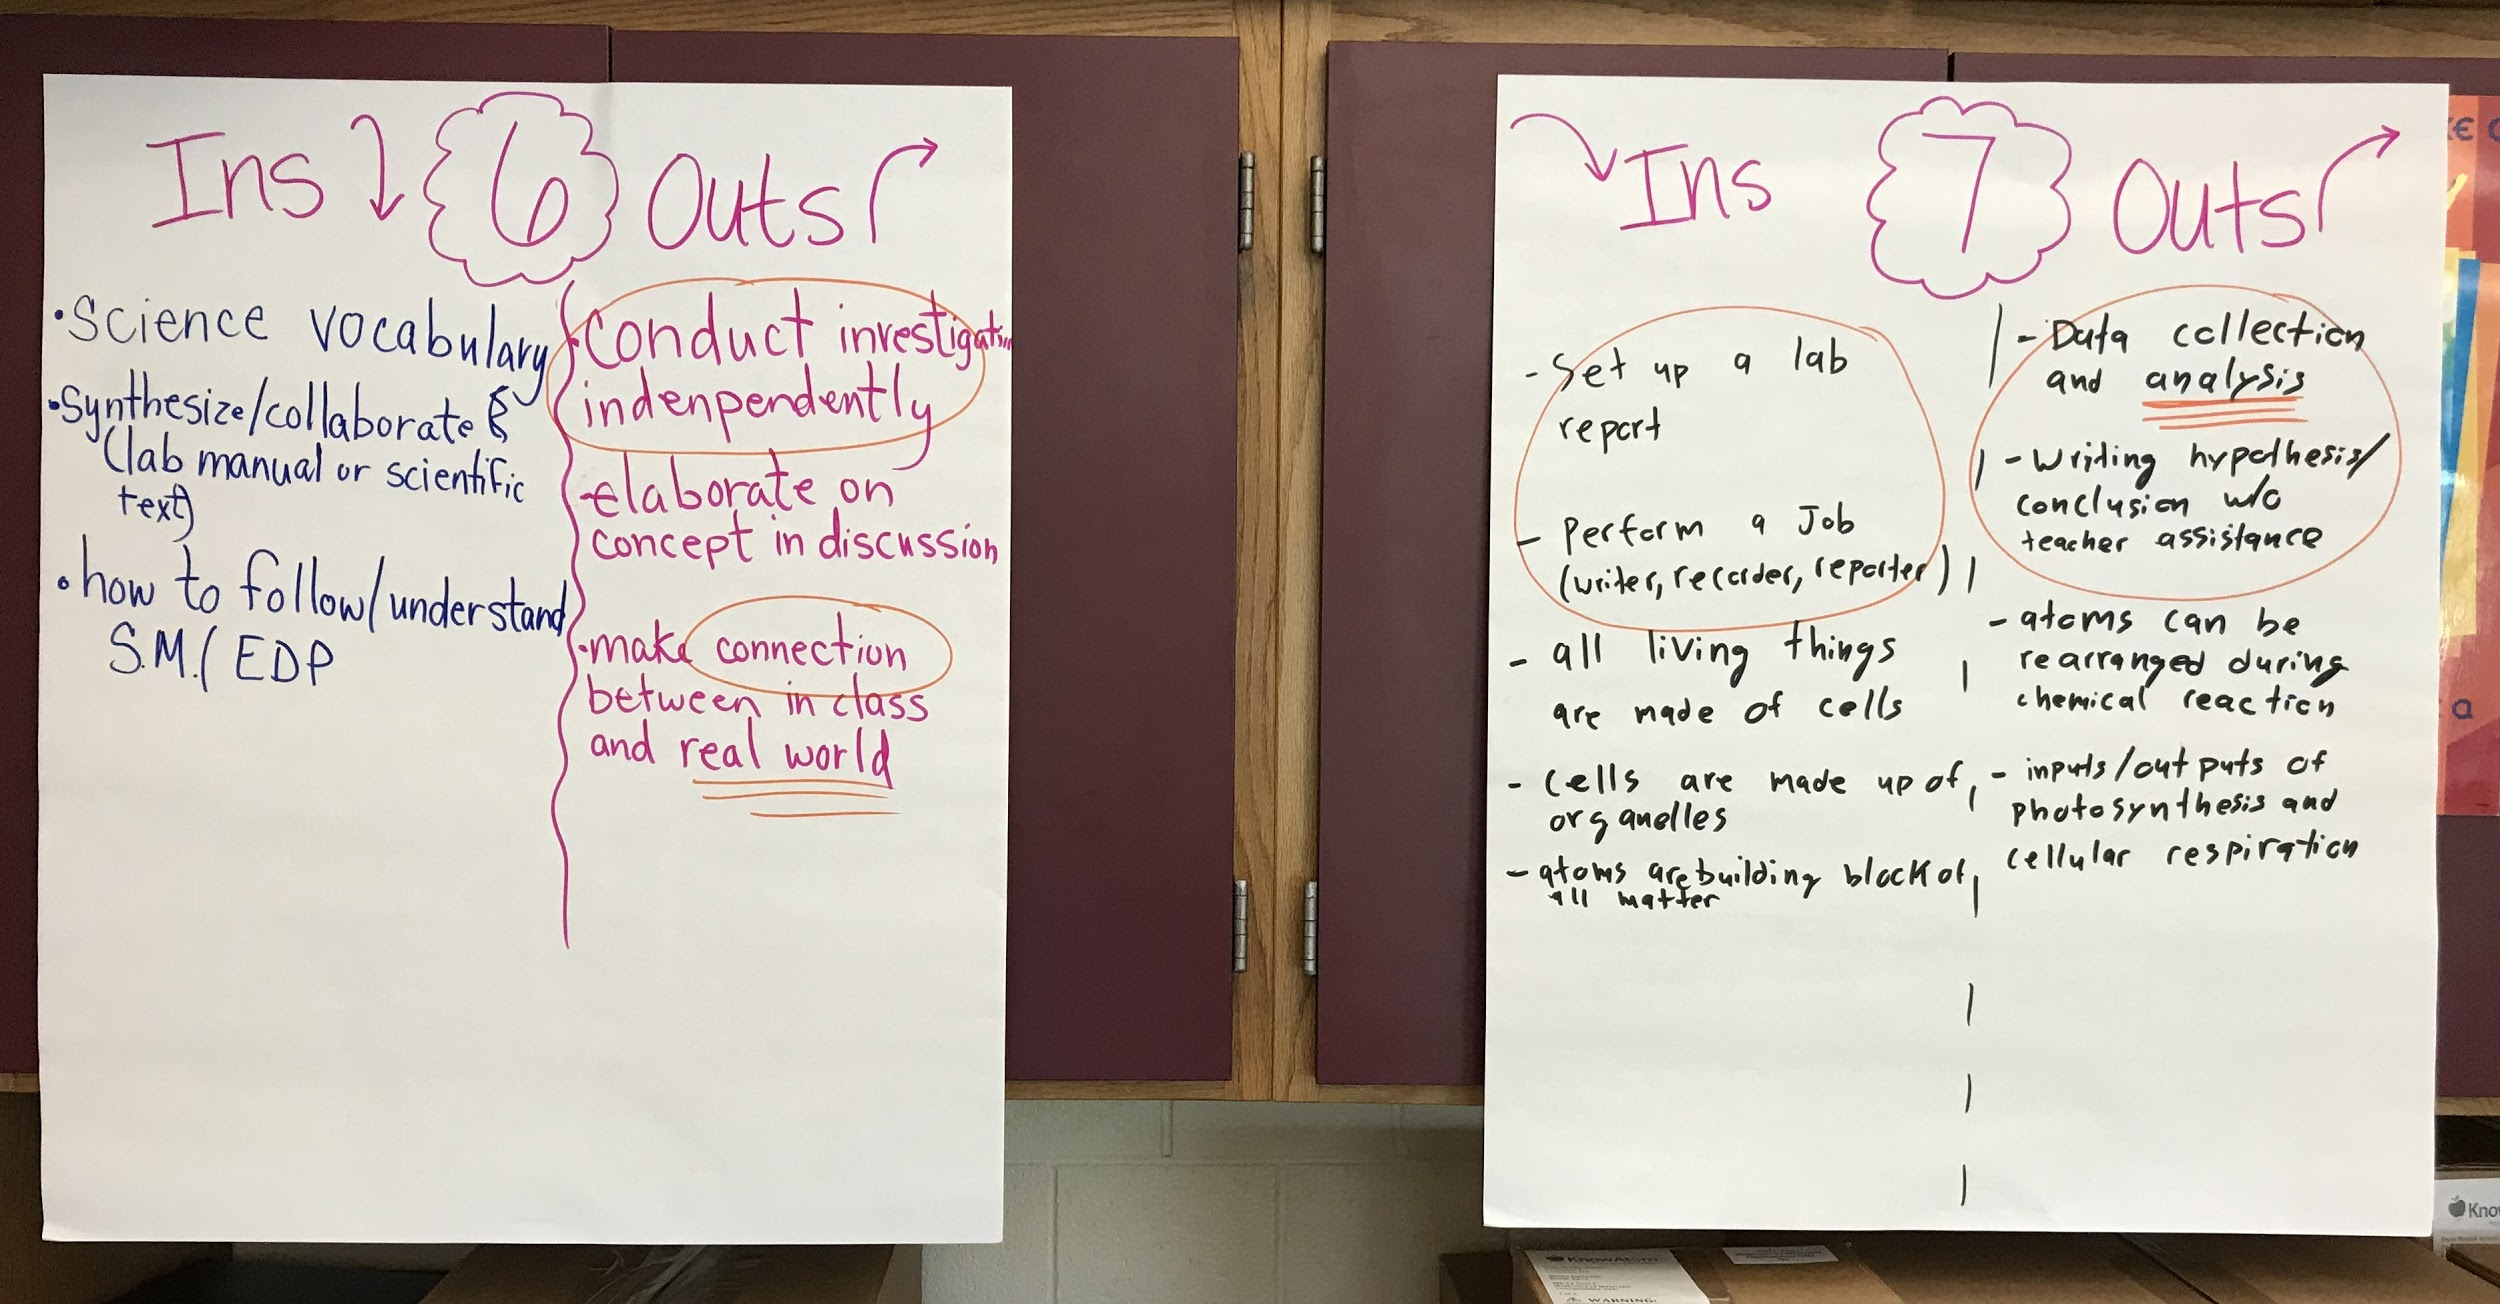 Ins 6 Outs
• Science vocabulary
• Synthesize/collaborate &
(lab manual or scientific
text)
• how to follow/understand
S.M./EDP
• Conduct investigation
indenpendently
- elaborate on
concept in discussion
• make connection
between in class
and real world
Ins 7 Outs
- Set up a lab
report
- Perform a Job
(writer, recorder, reporter)
- all living things
are made of cells
- Cells are made up of
organelles
- atoms are building block of
all matter
- Data collection
and analysis
- Writing hypothesis/
conclusion w/o
teacher assistance
- atoms can be
rearranged during
chemical reaction
- inputs/outputs of
photosynthesis and
cellular respiration
KnowAtom
WARNING:
Kno